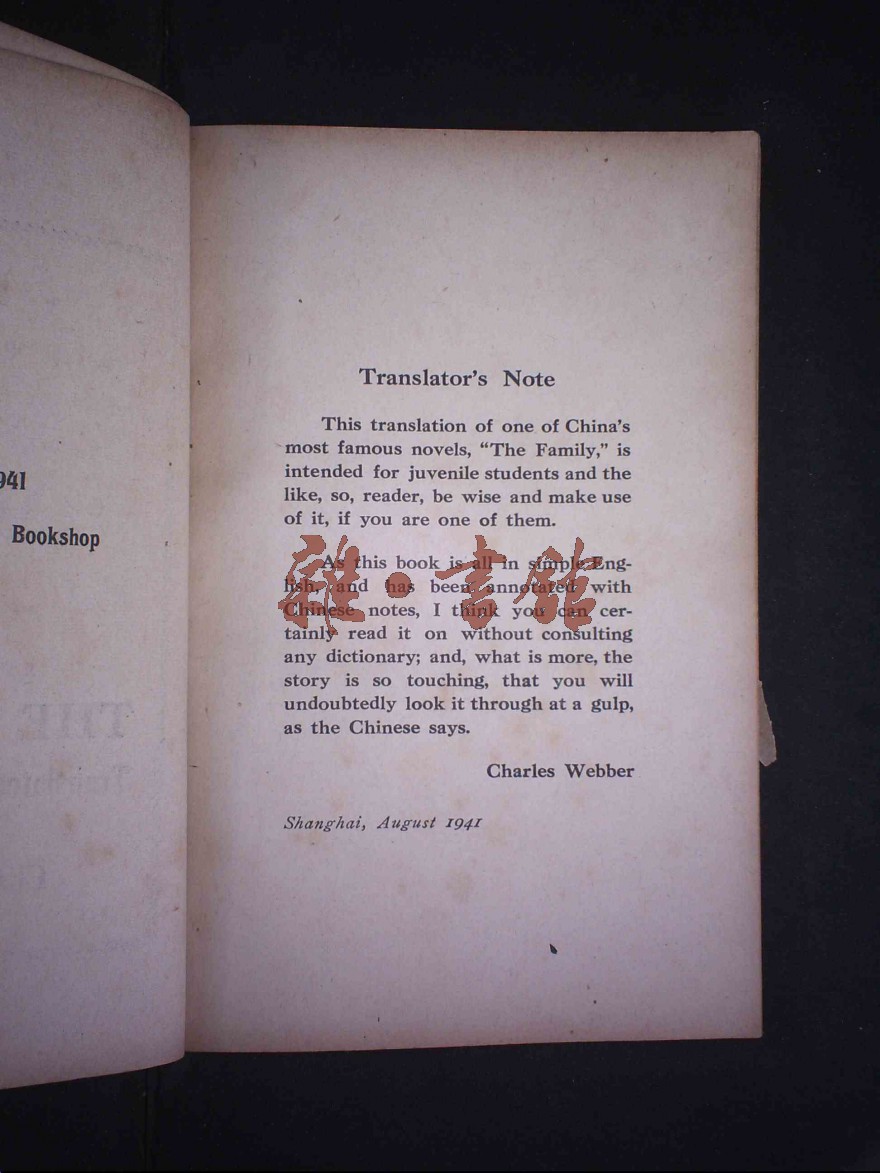 941
Bookshop
THE
Translator's Note
This translation of one of China's
most famous novels, “The Family,” is
intended for juvenile students and the
like, so, reader, be wise and make use
of it, if you are one of them.
As this book is all in simple Eng-
lish, and has been annotated with
Chinese notes, I think you can cer-
tainly read it on without consulting
any dictionary; and, what is more, the
story is so touching, that you will
undoubtedly look it through at a gulp,
as the Chinese says.
Charles Webber
Shanghai, August 1941
雜·書館